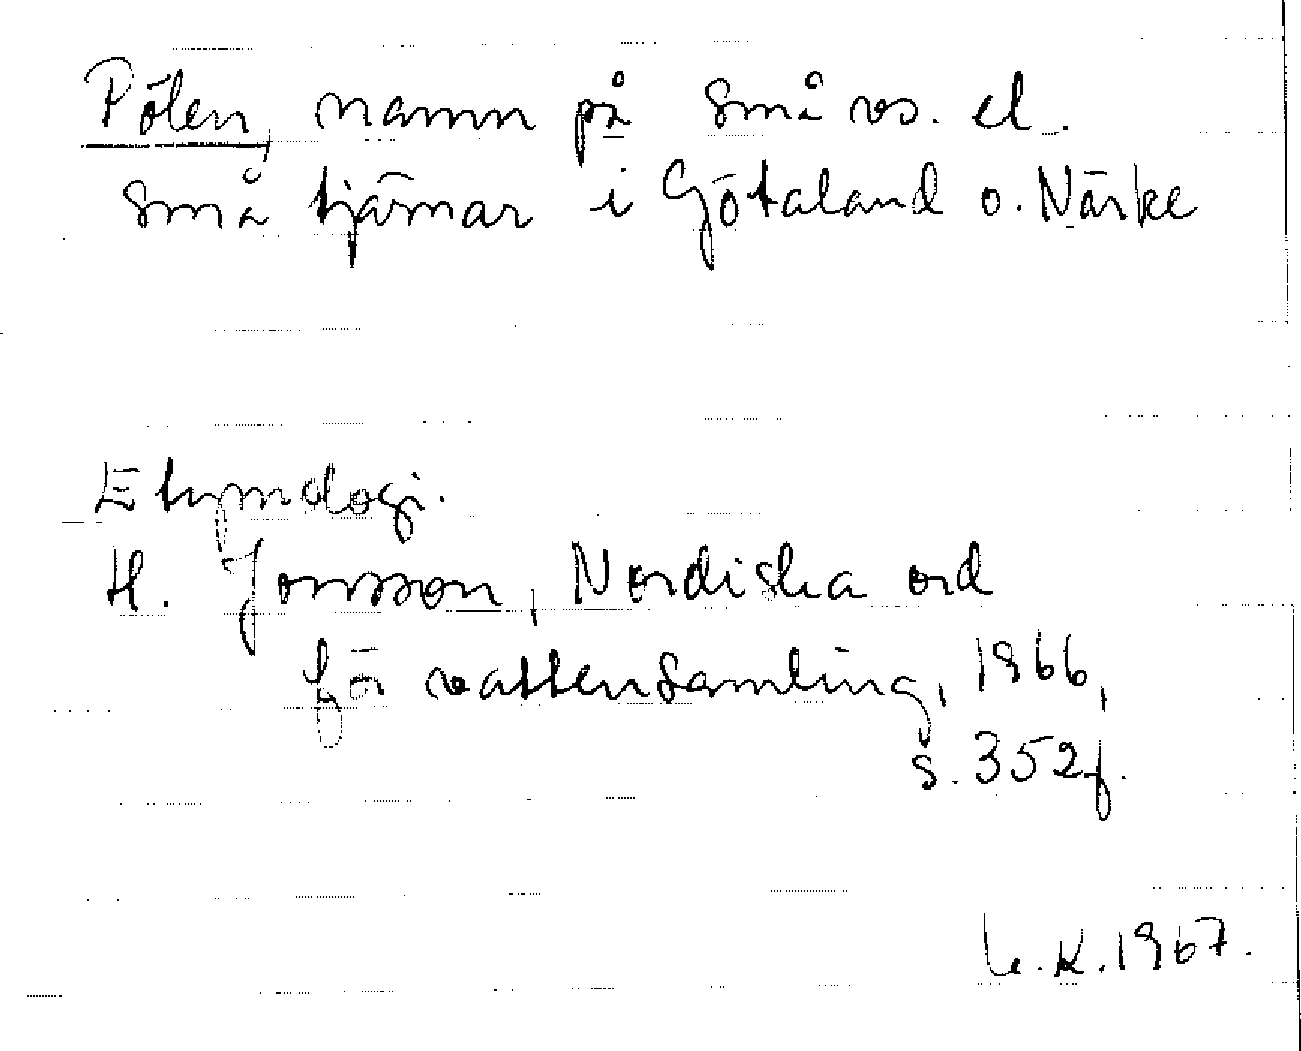 Pölen, namn på små vs. el.
små tjärnar i Götaland o. Närke
Etymologi.
H. Jonsson, Nordiska ord
för vattensamling, 1966,
s. 352f.
K. 1967.